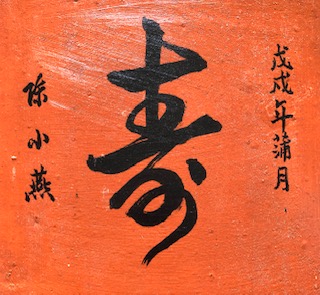 戊戌年蒲月
寿
陈小燕